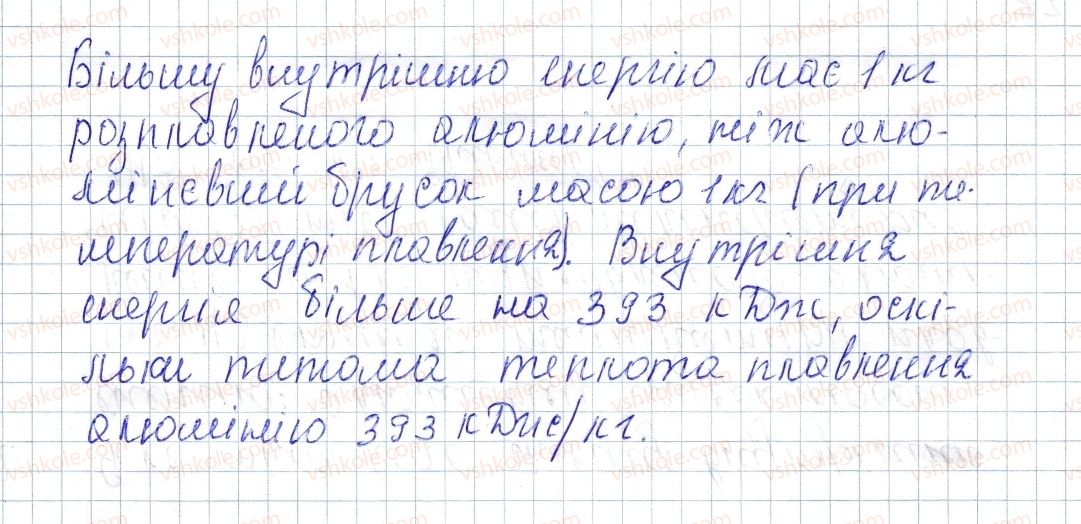 Більшу внутрішню енергію має 1 кг
розплавленого алюмінію, ніж алю-
мінієвий брусок масою 1 кг (при те-
мпературі плавлення). Внутрішня
енергія більше на 393 кДж, оскі-
льки питома теплота плавлення
алюмінію 393 кДж/кг.